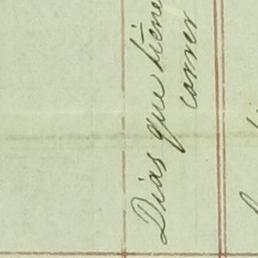 Dias que tiene
correr